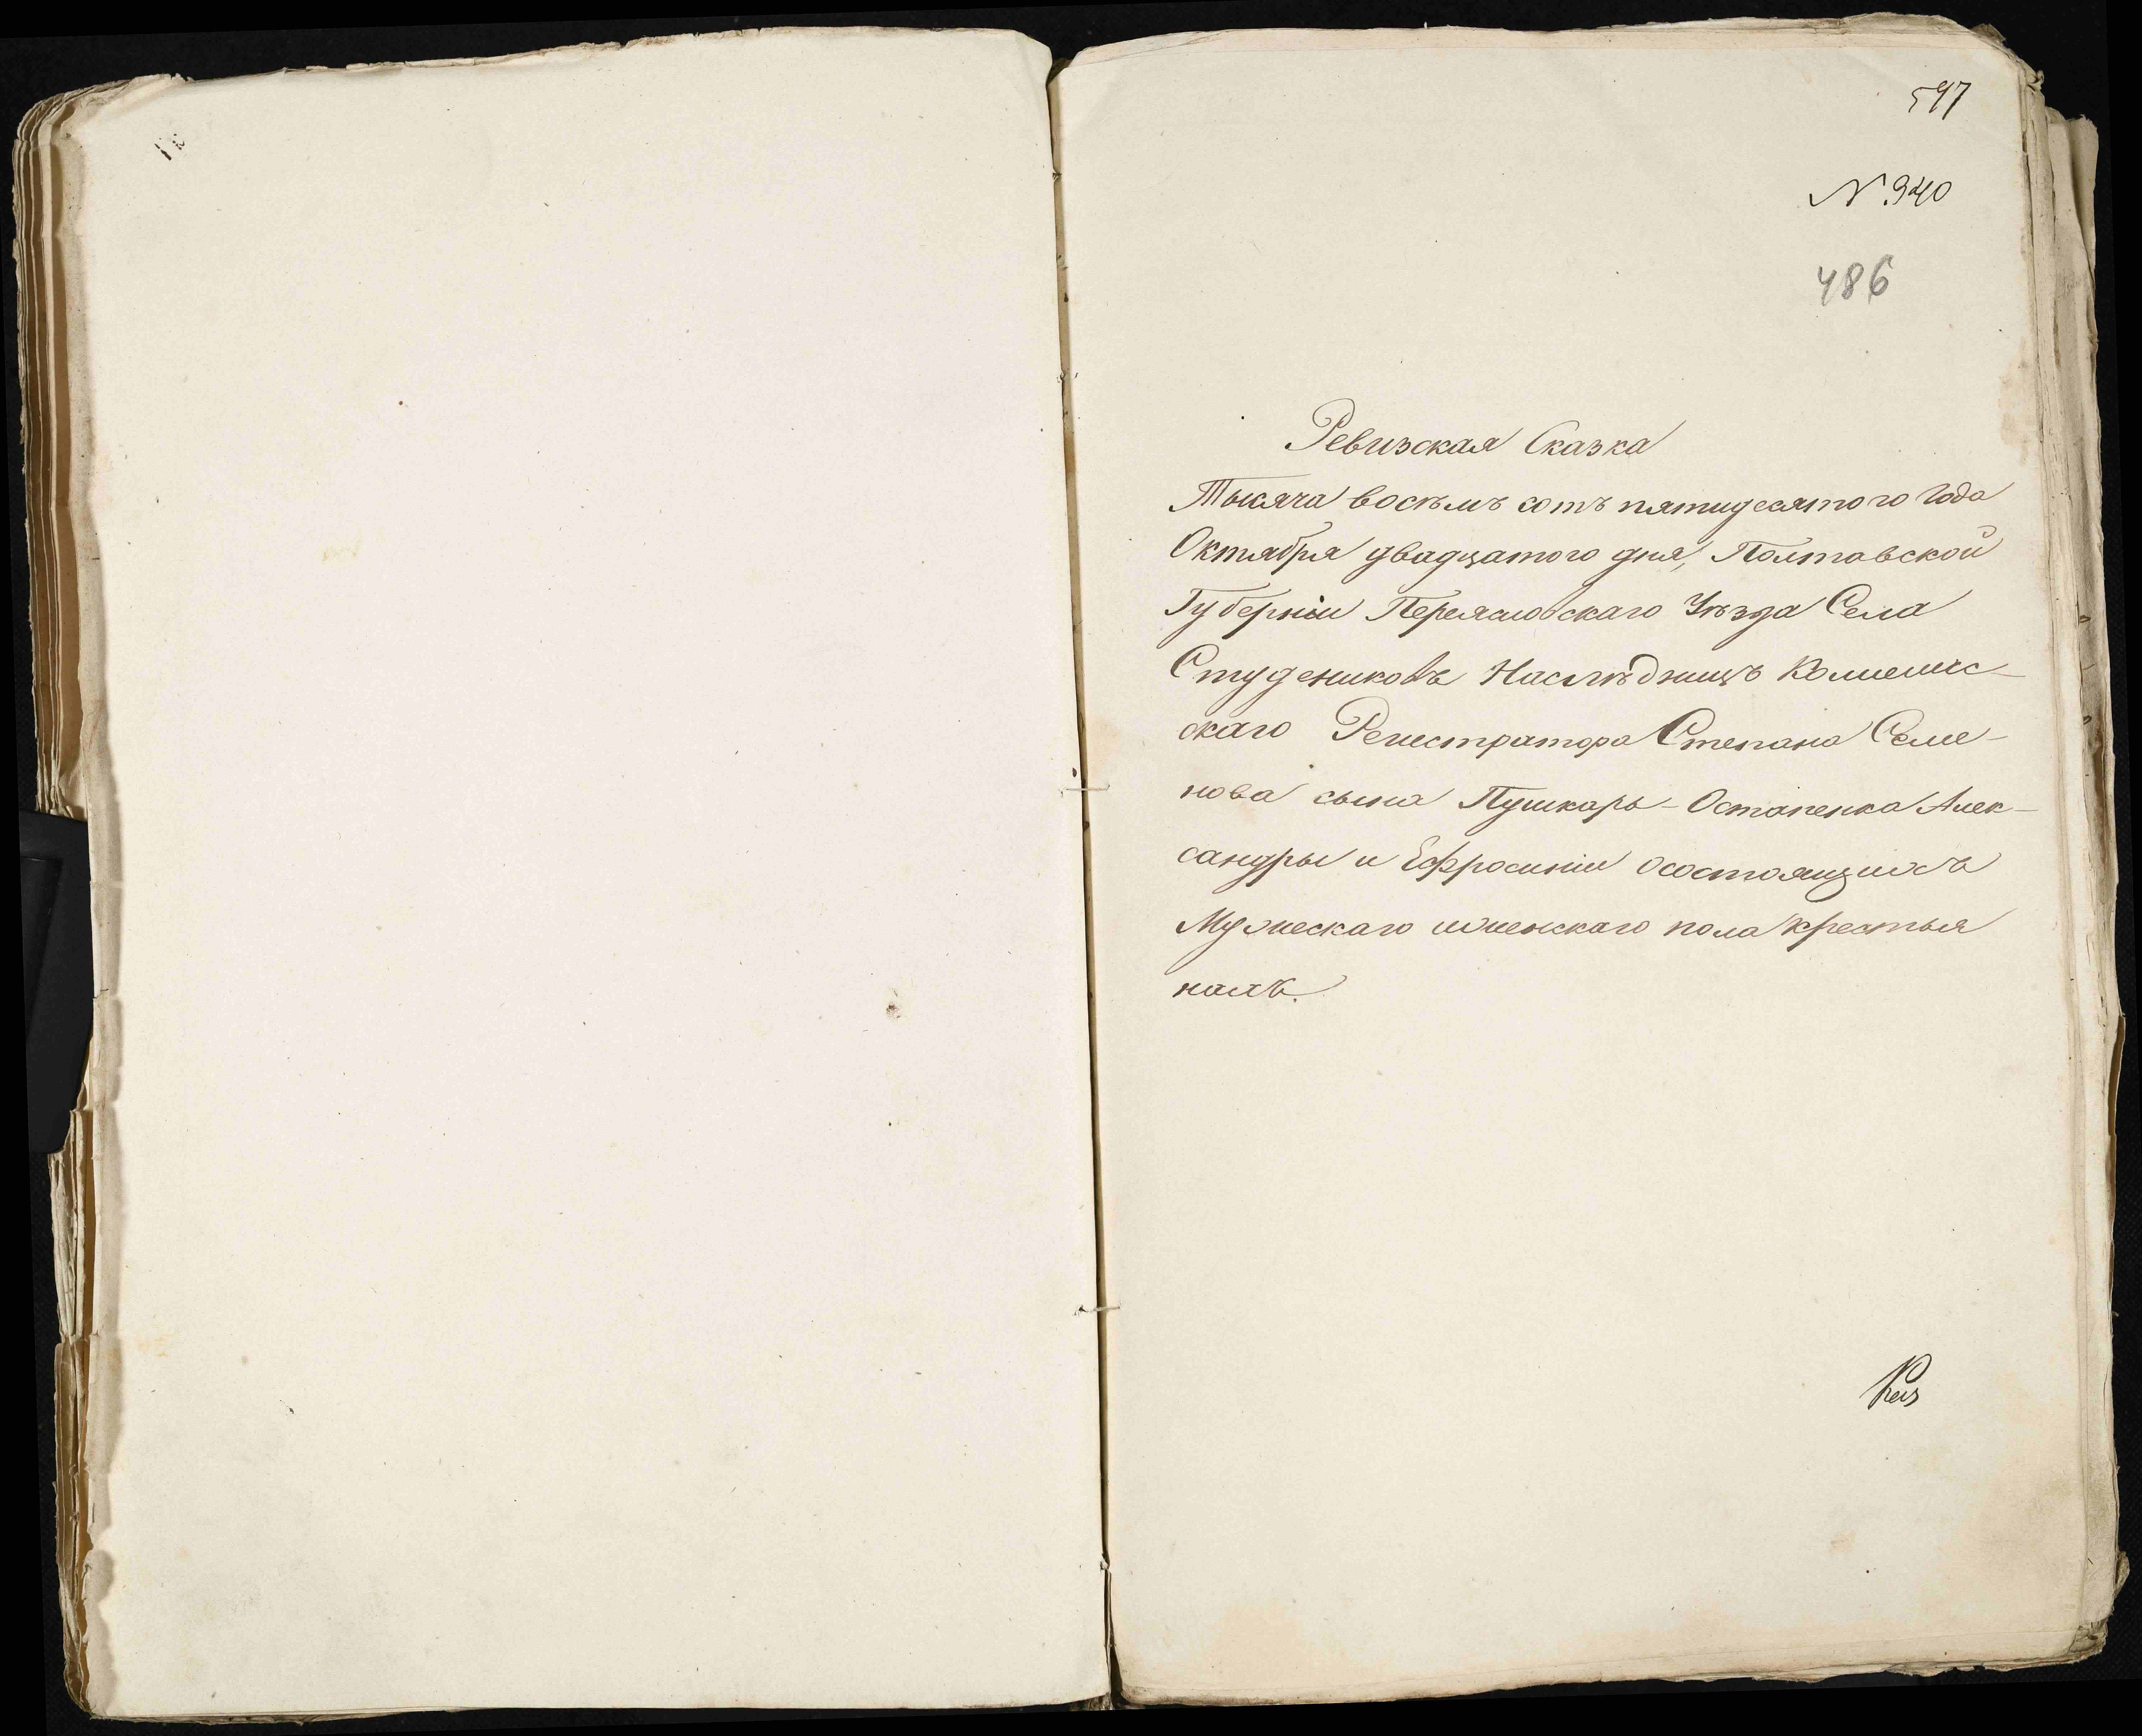 597
№ 940
486
Ревизская Сказка
Тысяча восемъ сотъ пятидесятого Года
Октября двадцатого дня, Полтавской
Губерніи Переясловскаго Уѣзда Села
Студениковъ Наслѣдницъ Колежс-
скаго Регистратора Степана Семе-
нова сына Пушкаря-Остапенка Алек-
сандры и Ефросиніи осостоящихъ
Мужескаго иженскаго пола крестья
нахъ.